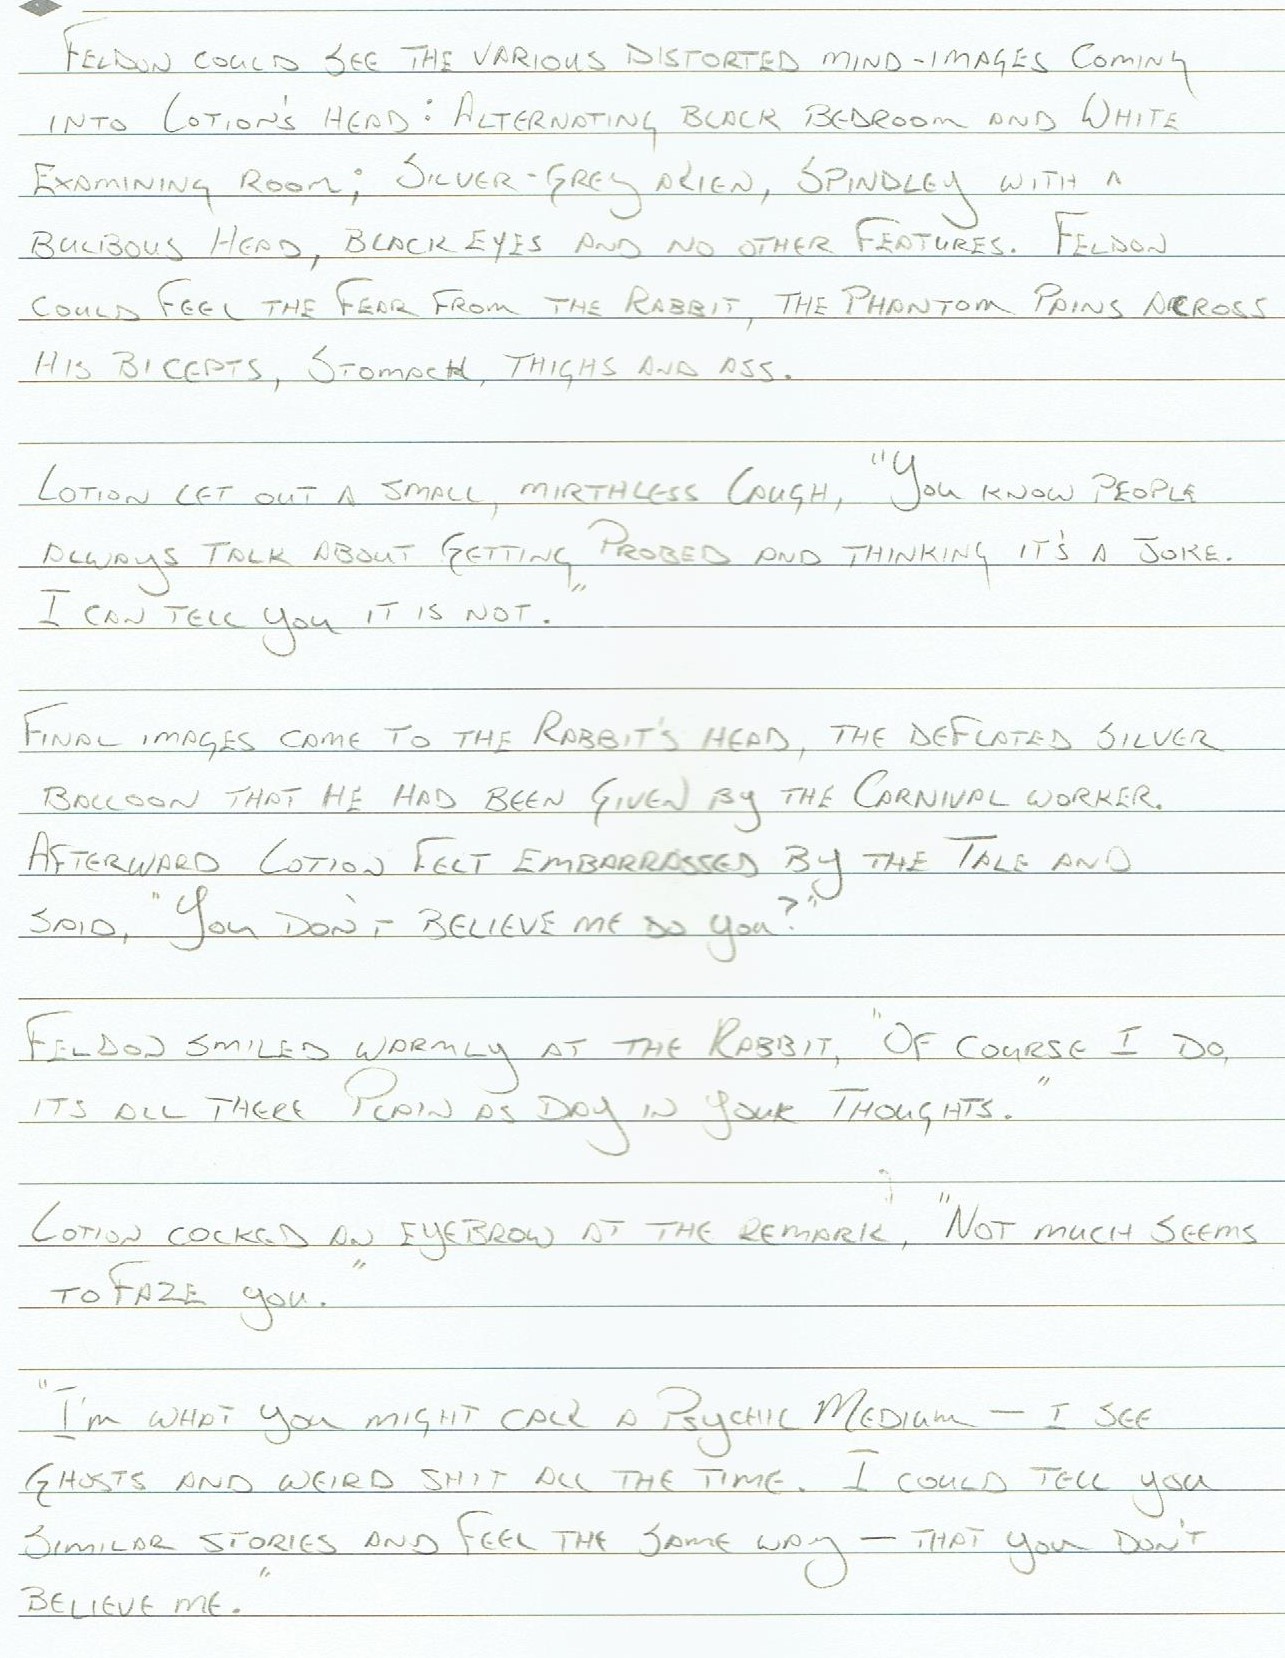 Feldon could see the various distorted mind-images coming
into Lotion's head: Alternating black bedroom and white
examining room; silver-grey alien, spindley with a
bulibous head, black eyes and no other features. Feldon
could feel the fear from the rabbit, the phantom pains across
his bicepts, stomach, thighs and ass.
Lotion let out a small, mirthless laugh, "You know people
always talk about getting probed and thinking it's a joke.
I can tell you it is not."
Final images came to the rabbit's head, the deflated silver
balloon that he had been given by the carnival worker.
Afterward Lotion felt embarrassed by the tale and
said, "You don't believe me do you?"
Feldon smiled warmly at the rabbit, "Of course I do,
its all there plain as day in your thoughts."
Lotion cocked an eyebrow at the remark, "Not much seems
to faze you."
"I'm what you might call a psychic medium — I see
ghosts and weird shit all the time. I could tell you
similar stories and feel the same way — that you don't
believe me."